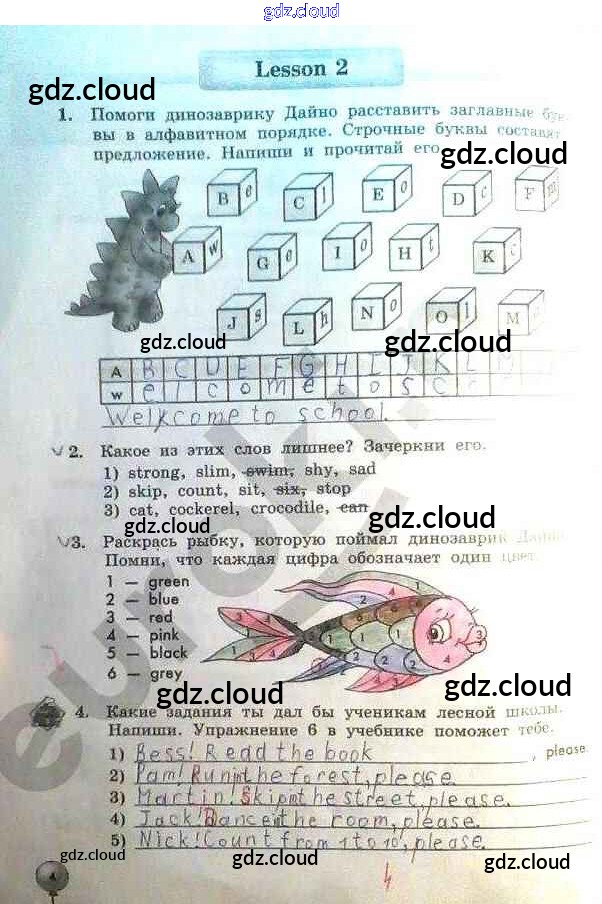 gdz.cloud
Lesson 2
gdz.cloud
1. Помоги динозаврику Дайно расставить заглавные бук-
вы в алфавитном порядке. Строчные буквы составят
предложение. Напиши и прочитай его.
gdz.cloud
B e C l E o D c F m
A w G e I o H t K c
J s L h N o O l M
gdz.cloud gdz.cloud
A B C D E F G H I J K L M
w e l c o m e t o s c
Welkcome to school.
2. Какое из этих слов лишнее? Зачеркни его.
1) strong, slim, swim, shy, sad
2) skip, count, sit, six, stop
3) cat, cockerel, crocodile, can
gdz.cloud gdz.cloud
3. Раскрась рыбку, которую поймал динозаврик Дайно.
Помни, что каждая цифра обозначает один цвет.
1 — green
2 — blue
3 — red
4 — pink
5 — black
6 — grey
gdz.cloud gdz.cloud
4. Какие задания ты дал бы ученикам лесной школы.
Напиши. Упражнение 6 в учебнике поможет тебе.
1) Bess! Read the book, please.
2) Pam! Run in the forest, please.
3) Martin! Skip in the street, please.
4) Jack! Dance in the room, please.
5) Nick! Count from 1 to 10, please.
gdz.cloud gdz.cloud gdz.cloud
4
euroki